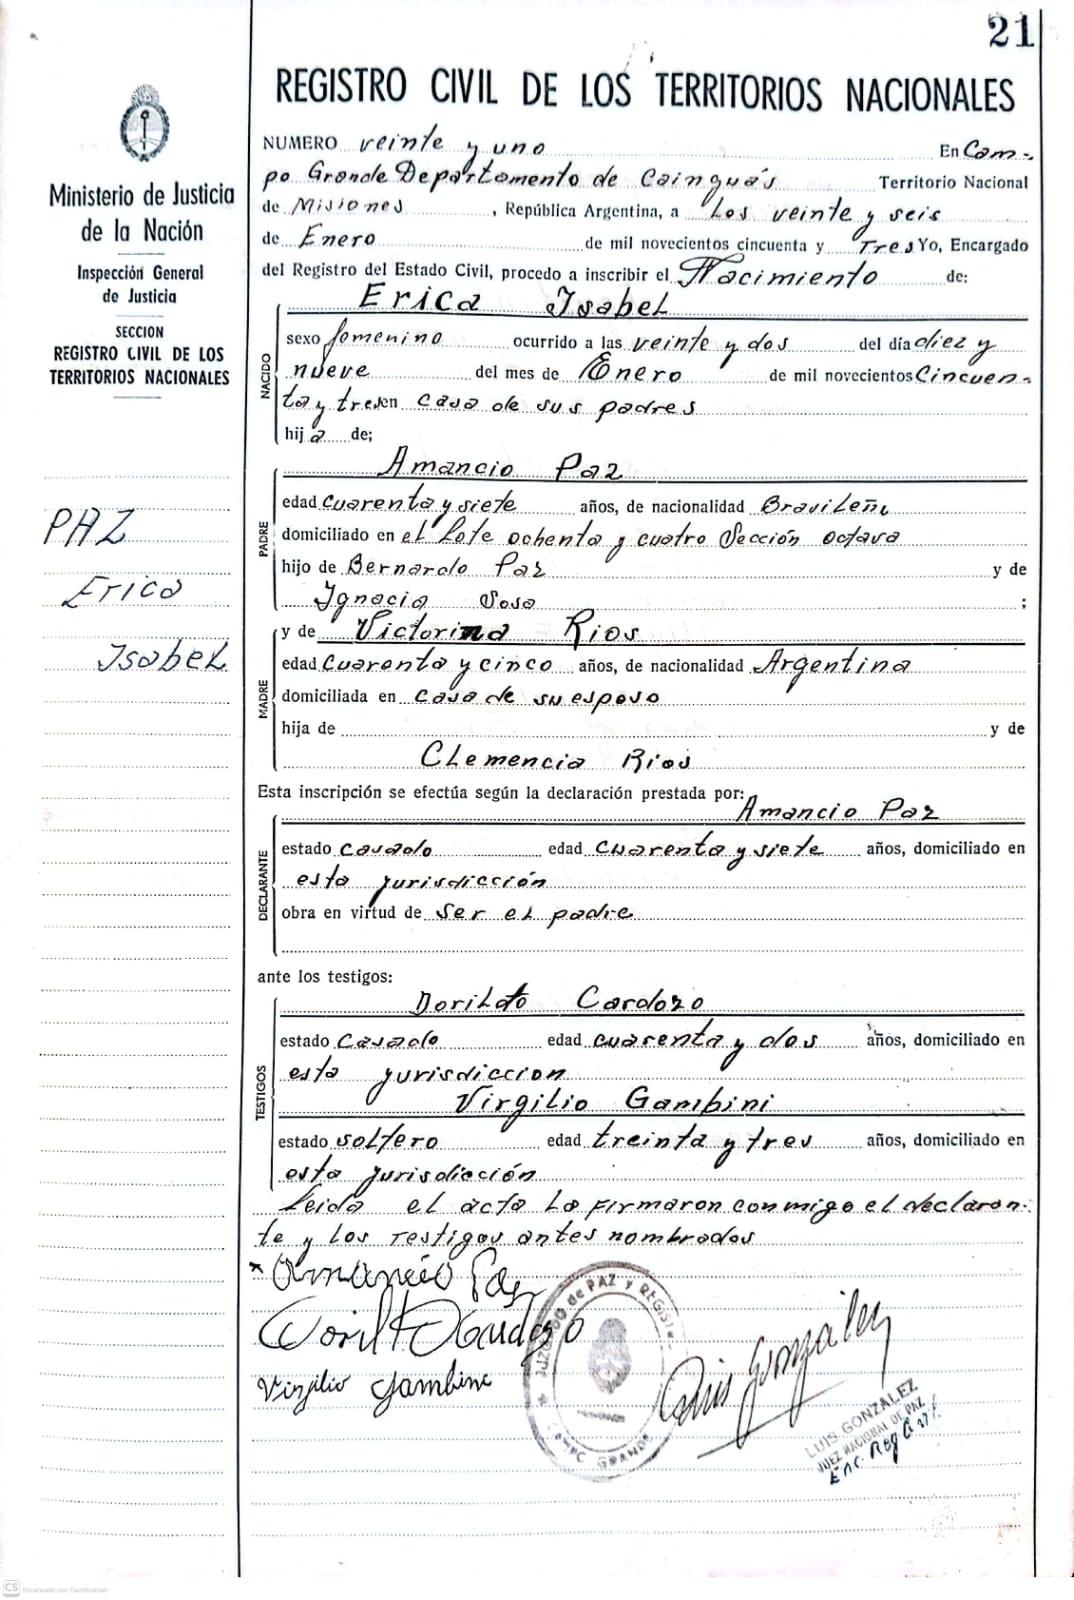 21
REGISTRO CIVIL DE LOS TERRITORIOS NACIONALES
Ministerio de Justicia
de la Nación
Inspección General
de Justicia
SECCION
REGISTRO CIVIL DE LOS
TERRITORIOS NACIONALES
PAZ
Erica
Isabel
NUMERO veinte y uno En Cam-
po Grande Departamento de Cainguás Territorio Nacional
de Misiones, República Argentina, a Los veinte y seis
de Enero de mil novecientos cincuenta y Tres Yo, Encargado
del Registro del Estado Civil, procedo a inscribir el Nacimiento de:
NACIDO
Erica Isabel
sexo femenino ocurrido a las veinte y dos del día diez y
nueve del mes de Enero de mil novecientos Cincuen-
ta y tres en casa de sus padres
hija de;
PADRE
Amancio Paz
edad cuarenta y siete años, de nacionalidad Brasileña
domiciliado en el Lote ochenta y cuatro Sección octava
hijo de Bernardo Paz y de
Ignacia Sosa ;
MADRE
y de Victorina Rios
edad Cuarenta y cinco años, de nacionalidad Argentina
domiciliada en casa de su esposo
hija de y de
Clemencia Rios
Esta inscripción se efectúa según la declaración prestada por:
Amancio Paz
DECLARANTE
estado casado edad cuarenta y siete años, domiciliado en
esta jurisdicción
obra en virtud de ser el padre
ante los testigos:
TESTIGOS
Dorildo Cardozo
estado Casado edad cuarenta y dos años, domiciliado en
esta jurisdiccion
Virgilio Gambini
estado soltero edad treinta y tres años, domiciliado en
esta jurisdicción
Leida el acta La firmaron conmigo el declaran-
te y los testigos antes nombrados
Amancio Paz
Virgilio Gambini
Luis Gonzalez
JUZGADO de PAZ y REGIST
CAMPO GRANDE
LUIS GONZALEZ
JUEZ NACIONAL DE PAZ
Enc. Reg. Civil
CS Escaneado con CamScanner